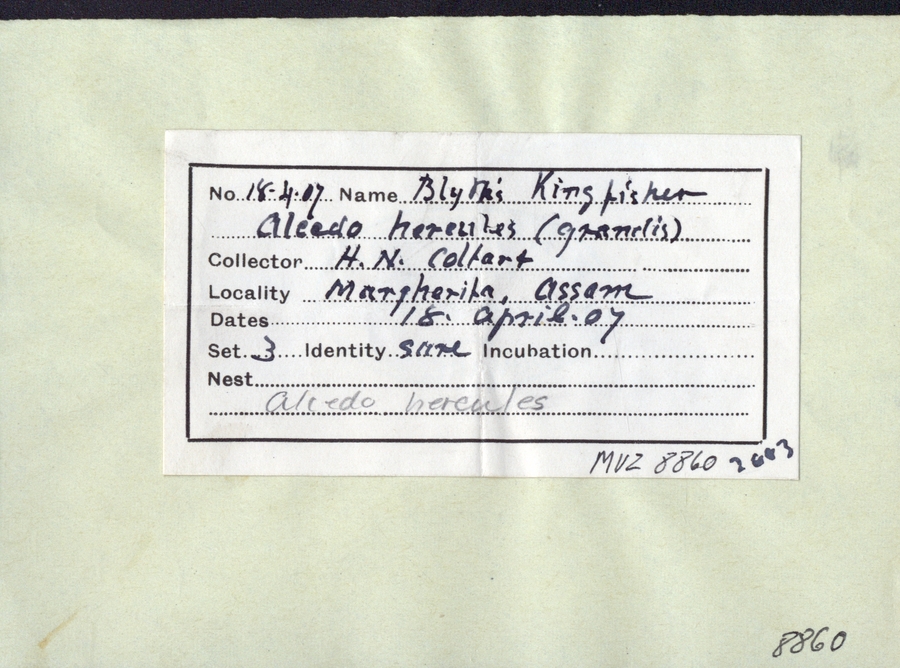 No. 18-4-07 Name Blyth's Kingfisher
Alcedo hercules (grandis)
Collector H. N. Coltart
Locality Margherita, Assam
Dates 18. April. 07
Set 3 Identity sure Incubation
Nest
Alcedo hercules
MVZ 8860 2003
8860